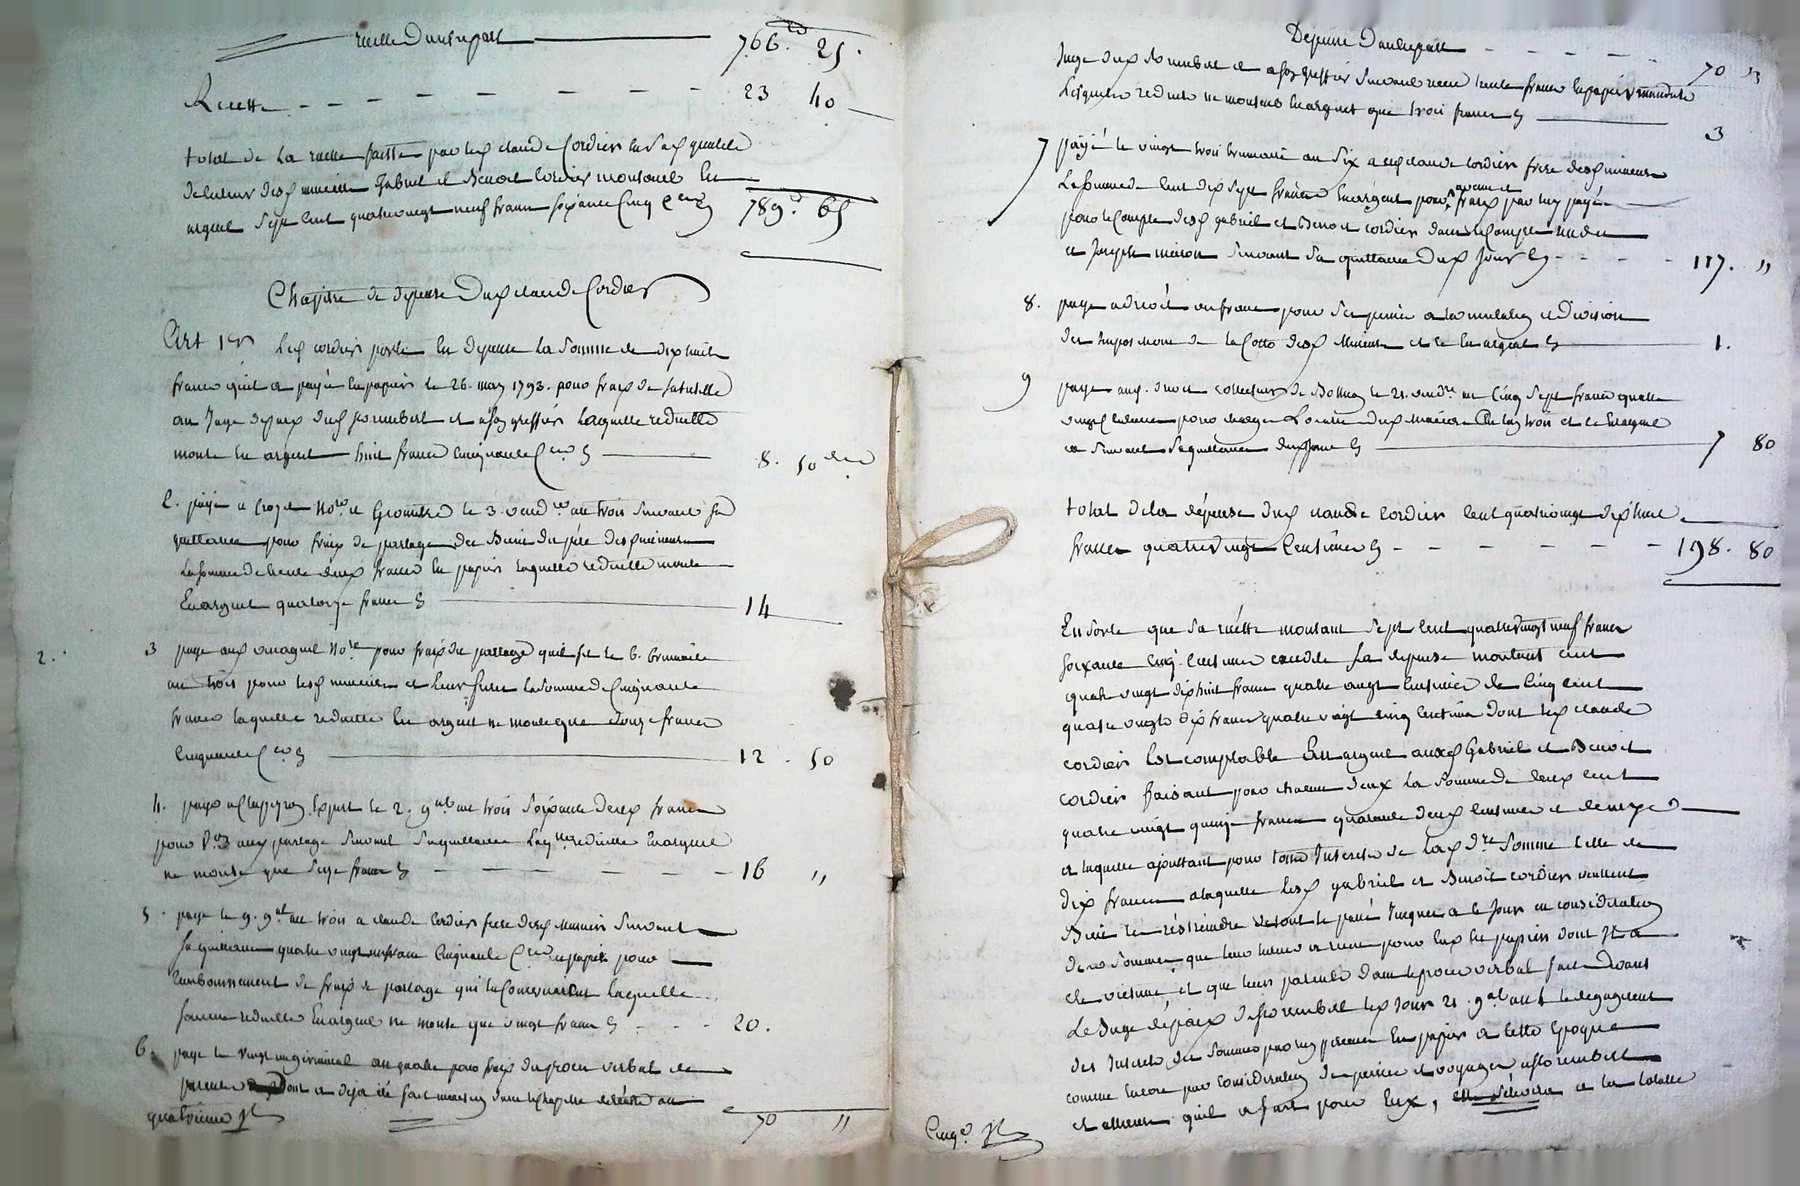 recette d'autre part 766.ᶜˢ 25.
Recette - - - - - - - - 23 40
total de la recette faitte par led claude Cordier en sad qualité
de tuteur desd mineurs Gabriel et Benoit Cordier montant en
argent sept cent quatrevingt neuf francs soixante cinq c. 789. 65
Chapitre de dépense dud claude Cordier
Art 1er led cordier porte en dépense la somme de dix huit
francs qu'il a payé en papier le 26. may 1793. pour fraix de tutelle
au Juge de paix de st rembert et à son greffier laquelle reduitte
monte en argent huit francs cinquante c. 8. 50
2. payé à Noʳᵉ et Géomettre le 3. vendʳᵉ an trois suivant sa
quittance pour fraix de partage des Biens du père desd mineurs
la somme de trente deux francs en papier laquelle reduitte monte
En argent quatorze francs 14
2.
3 payé aud Noʳᵉ pour fraix de partage qu'il fit le 6. brumaire
an trois pour lesd mineurs et leur frere la somme de Cinquante
francs laquelle reduitte en argent ne monte que douze francs
cinquante c. 12. 50
4. payé a expert le 2. 9ᵇʳᵉ an trois soixante deux francs
pour aud partage suivant sa quittance laquelle reduitte En argent
ne monte que seize francs - - - - - 16 "
5. payé le 9. 9ᵇʳᵉ an trois a claude Cordier frere desd Mineurs suivant
sa quittance quatre vingt francs Cinquante c. en papier pour
remboursement de fraix de partage qui les Concernoient laquelle
somme reduitte En argent ne monte que vingt francs - - - 20.
6. payé le vingt germinal an quatre pour fraix du proces verbal de
parents dont a deja été fait mention dans le chapitre au
quatrième 70 "
Dépense d'autre part - - - - 70 "
Juge de paix de st rembert et a son greffier suivant recu trente francs en papier mandats
lesquels reduits ne montent en argent que trois francs 3
7 payé le vingt trois brumaire an six a claude Cordier frere desd mineurs
la somme de Cent dix sept francs En argent pour avance et fraix par luy payés
pour le Compte desd gabriel et Benoit Cordier dans le Compte rendu
a Joseph suivant sa quittance dud Jour - - - - 117. "
8. payé a droit un franc pour ses peines a la mutation et Division
des Impositions de la Cotte desd Mineurs et ce En argent 1.
9 payé aud. droit collecteur de le 21. vendʳᵉ an Cinq sept francs quatre
vingt Centimes pour charge Locale desd Mineurs de l'an trois et ce En argent
ce suivant sa quittance dud jour 7 80
total de la dépense dud claude Cordier Cent quatrevingt dix huit
francs quatre vingt Centimes - - - - - - 198. 80
En sorte que sa recette montant sept Cent quatrevingt neuf francs
soixante Cinq Centimes excède sa dépense montant cent
quatre vingt dix huit francs quatre vingt Centimes de Cinq Cent
quatre vingts dix francs quatre vingt cinq centimes dont led claude
Cordier est comptable En argent auxd Gabriel et Benoit
Cordier faisant pour chacun d'eux la somme de deux cent
quatre vingt quinze francs quarante deux Centimes et demy
a laquelle ajouttant pour tous Interets de lad dʳᵉ somme celle de
dix francs a laquelle lesd gabriel et Benoit Cordier veulent
Bien les réstreindre Jusques a ce Jour en considération
de ce sommes que leur tuteur a recu pour eux en papier dont Il a
été victime, et que leurs parents dans le proces verbal fait devant
Le Juge de paix de st rembert led Jour 21. 9ᵇʳᵉ an 4 le degagerent
des Interets des sommes par luy percues En papier a cette Epoque
comme encore par considération des peines et voyages a st rembert
et ailleurs qu'il a fait pour Eux, et la totalle
Cinqᵉ